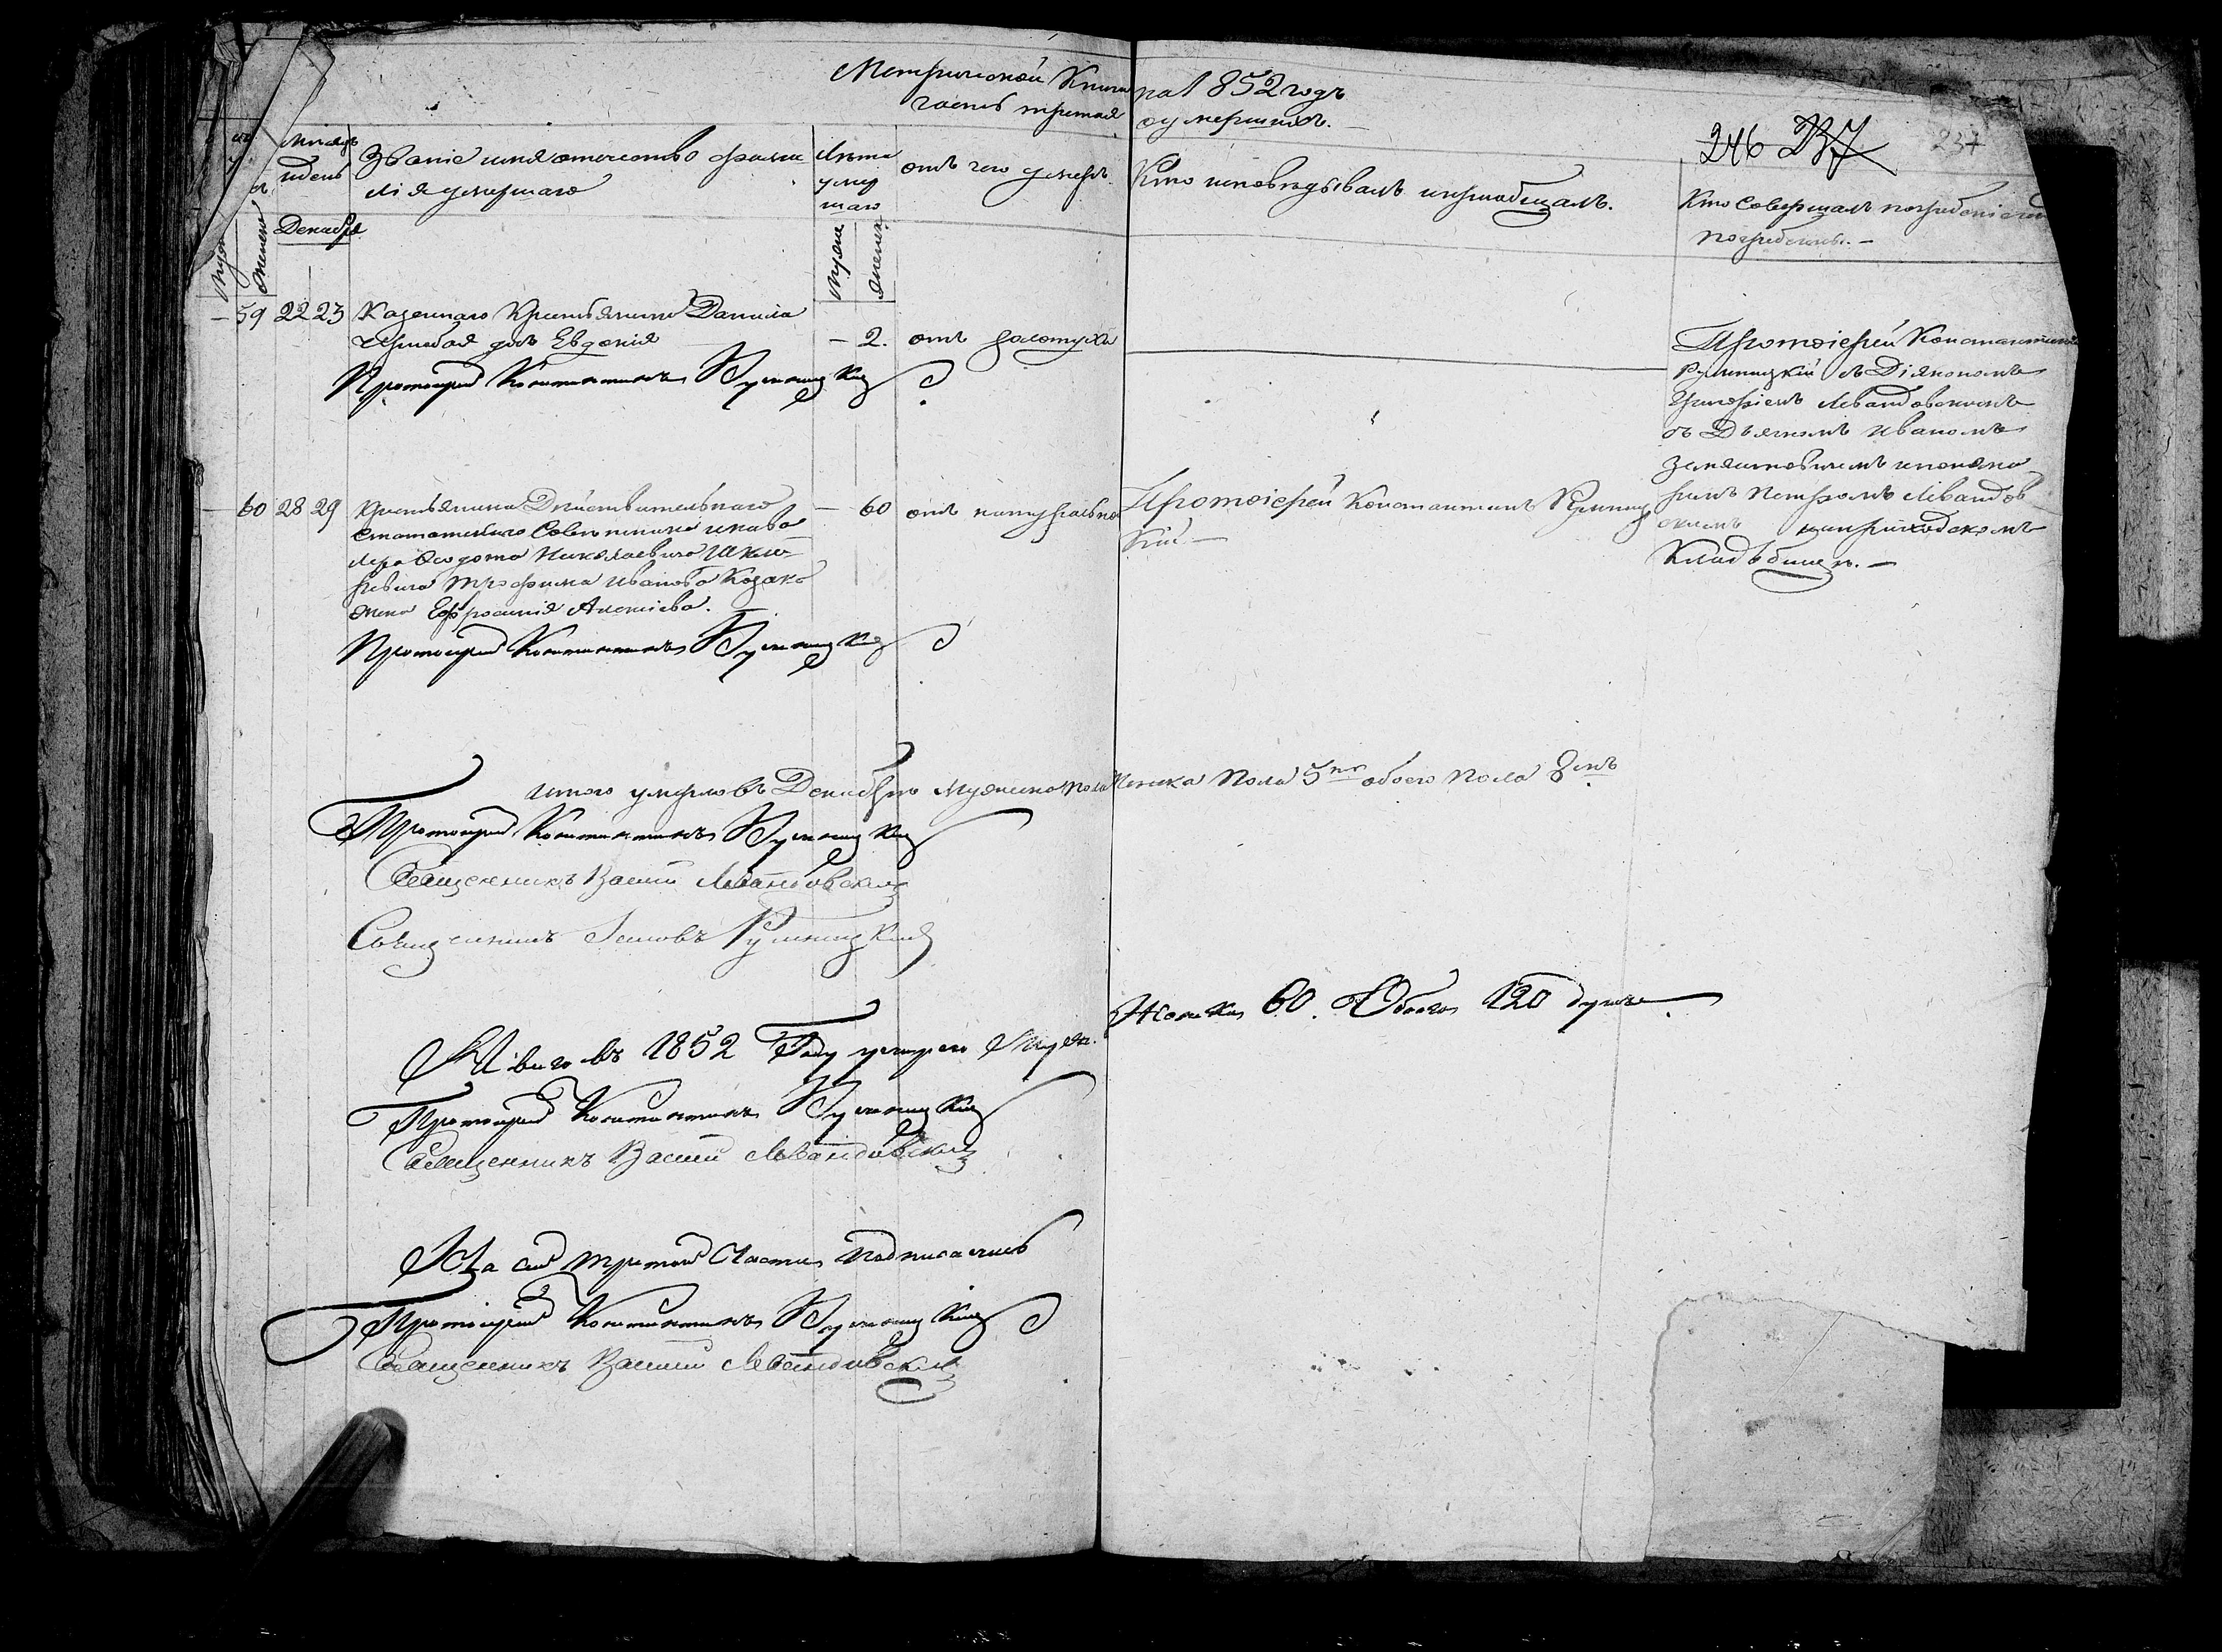 Метрической Книги на 1852 годъ
часть третая о умершихъ.
246 237 237
Мѣсяцъ
и день
Званіе имя отечество фами
лія умершаго
Лѣта
умер
шаго
отъ чего умеръ
Кто исповѣдывалъ и пріобщалъ.
Кто Совершалъ погребеніе и гдѣ
погребены. —
Декабря
Муж
Женска
Мужеск
Женска
— 59 22 23 Казеннаго Крестьянина Данила
дочь Евдокія — 2. отъ золотухи
Протоіерей Константинъ Румницкій
Протоіерей Константинъ
Румницкій съ Діякономъ
Григоріемъ Левандовскимъ
съ Дьячкомъ Иваномъ
и понама
ремъ Петромъ Левандов
скимъ на приходскомъ
Кладбищѣ. —
— 60 28 29 Крестьянина Дѣйствительнаго
Статскаго Совѣтника и кава
лера Федота Николаевича Шкля
ревича Трофима Иванова Козака
жена Ефросинія Алексіева.
— 60 отъ натуральной
Протоіерей Константинъ Румниц
кій —
Протоіерей Константинъ Румницкій
итого умерло въ Декабрѣ Мужеска пола женска Пола 5ть обоего пола 8мь
Протоіерей Константинъ Румницкій
Священникъ Василий Левандовский
Священникъ Іаковъ Румницкій
А всего въ 1852 Году умерло Муж. Женска 60. Обоего 120 душъ
Протоіерей Константинъ Румницкій
Священникъ Василий Левандовский
Къ сей третой Части подписались
Протоіерей Константинъ Румницкій
Священникъ Василий Левандовский